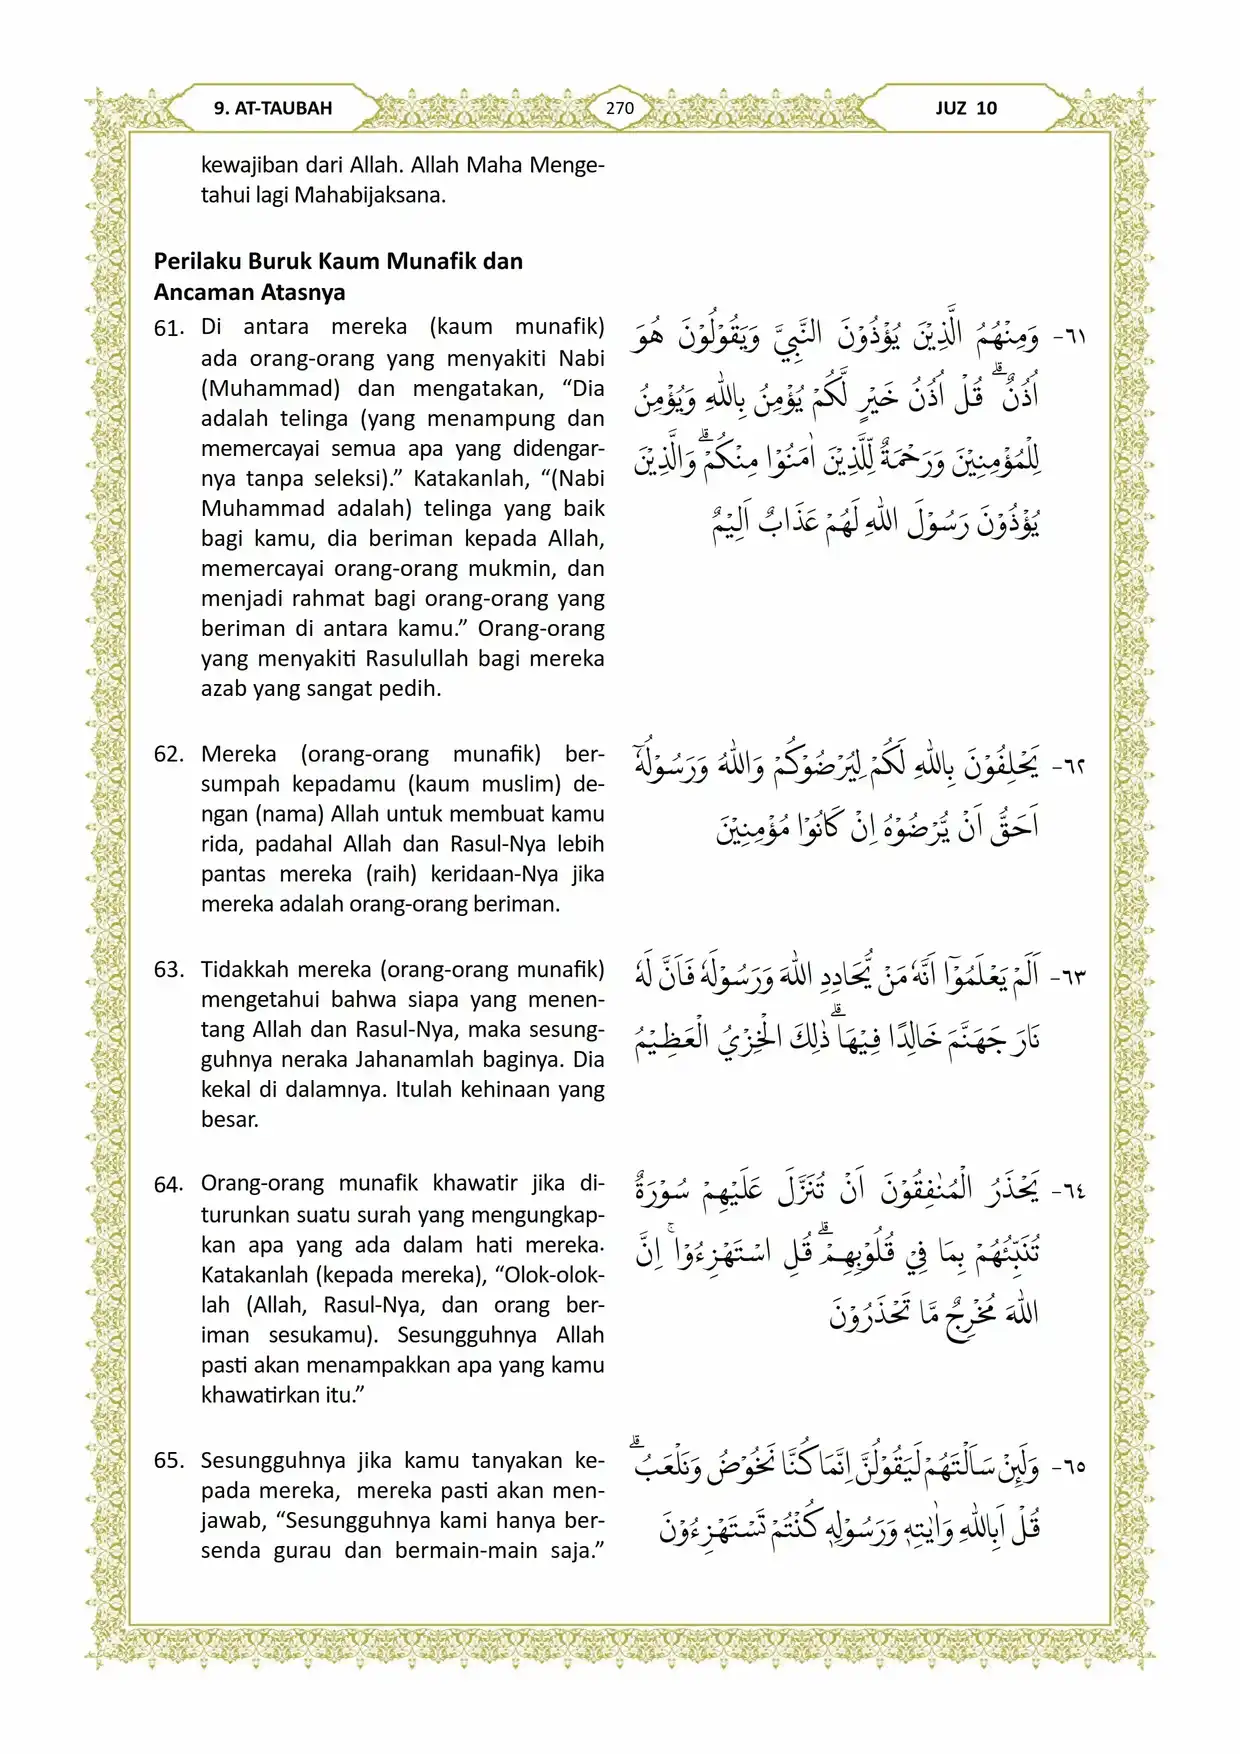 9. AT-TAUBAH
270
JUZ 10
kewajiban dari Allah. Allah Maha Menge-
tahui lagi Mahabijaksana.
Perilaku Buruk Kaum Munafik dan
Ancaman Atasnya
61. Di antara mereka (kaum munafik)
ada orang-orang yang menyakiti Nabi
(Muhammad) dan mengatakan, “Dia
adalah telinga (yang menampung dan
memercayai semua apa yang didengar-
nya tanpa seleksi).” Katakanlah, “(Nabi
Muhammad adalah) telinga yang baik
bagi kamu, dia beriman kepada Allah,
memercayai orang-orang mukmin, dan
menjadi rahmat bagi orang-orang yang
beriman di antara kamu.” Orang-orang
yang menyakiti Rasulullah bagi mereka
azab yang sangat pedih.
٦١- وَمِنْهُمُ الَّذِيْنَ يُؤْذُوْنَ النَّبِيَّ وَيَقُوْلُوْنَ هُوَ
اُذُنٌ ۗقُلْ اُذُنُ خَيْرٍ لَّكُمْ يُؤْمِنُ بِاللّٰهِ وَيُؤْمِنُ
لِلْمُؤْمِنِيْنَ وَرَحْمَةٌ لِّلَّذِيْنَ اٰمَنُوْا مِنْكُمْۗ وَالَّذِيْنَ
يُؤْذُوْنَ رَسُوْلَ اللّٰهِ لَهُمْ عَذَابٌ اَلِيْمٌ
62. Mereka (orang-orang munafik) ber-
sumpah kepadamu (kaum muslim) de-
ngan (nama) Allah untuk membuat kamu
rida, padahal Allah dan Rasul-Nya lebih
pantas mereka (raih) keridaan-Nya jika
mereka adalah orang-orang beriman.
٦٢- يَحْلِفُوْنَ بِاللّٰهِ لَكُمْ لِيُرْضُوْكُمْ وَاللّٰهُ وَرَسُوْلُهٗٓ
اَحَقُّ اَنْ يُّرْضُوْهُ اِنْ كَانُوْا مُؤْمِنِيْنَ
63. Tidakkah mereka (orang-orang munafik)
mengetahui bahwa siapa yang menen-
tang Allah dan Rasul-Nya, maka sesung-
guhnya neraka Jahanamlah baginya. Dia
kekal di dalamnya. Itulah kehinaan yang
besar.
٦٣- اَلَمْ يَعْلَمُوْٓا اَنَّهٗ مَنْ يُّحَادِدِ اللّٰهَ وَرَسُوْلَهٗ فَاَنَّ لَهٗ
نَارَ جَهَنَّمَ خَالِدًا فِيْهَاۗ ذٰلِكَ الْخِزْيُ الْعَظِيْمُ
64. Orang-orang munafik khawatir jika di-
turunkan suatu surah yang mengungkap-
kan apa yang ada dalam hati mereka.
Katakanlah (kepada mereka), “Olok-olok-
lah (Allah, Rasul-Nya, dan orang ber-
iman sesukamu). Sesungguhnya Allah
pasti akan menampakkan apa yang kamu
khawatirkan itu.”
٦٤- يَحْذَرُ الْمُنٰفِقُوْنَ اَنْ تُنَزَّلَ عَلَيْهِمْ سُوْرَةٌ
تُنَبِّئُهُمْ بِمَا فِيْ قُلُوْبِهِمْۗ قُلِ اسْتَهْزِءُوْاۚ اِنَّ
اللّٰهَ مُخْرِجٌ مَّا تَحْذَرُوْنَ
65. Sesungguhnya jika kamu tanyakan ke-
pada mereka, mereka pasti akan men-
jawab, “Sesungguhnya kami hanya ber-
senda gurau dan bermain-main saja.”
٦٥- وَلَىِٕنْ سَاَلْتَهُمْ لَيَقُوْلُنَّ اِنَّمَا كُنَّا نَخُوْضُ وَنَلْعَبُۗ
قُلْ اَبِاللّٰهِ وَاٰيٰتِهٖ وَرَسُوْلِهٖ كُنْتُمْ تَسْتَهْزِءُوْنَ